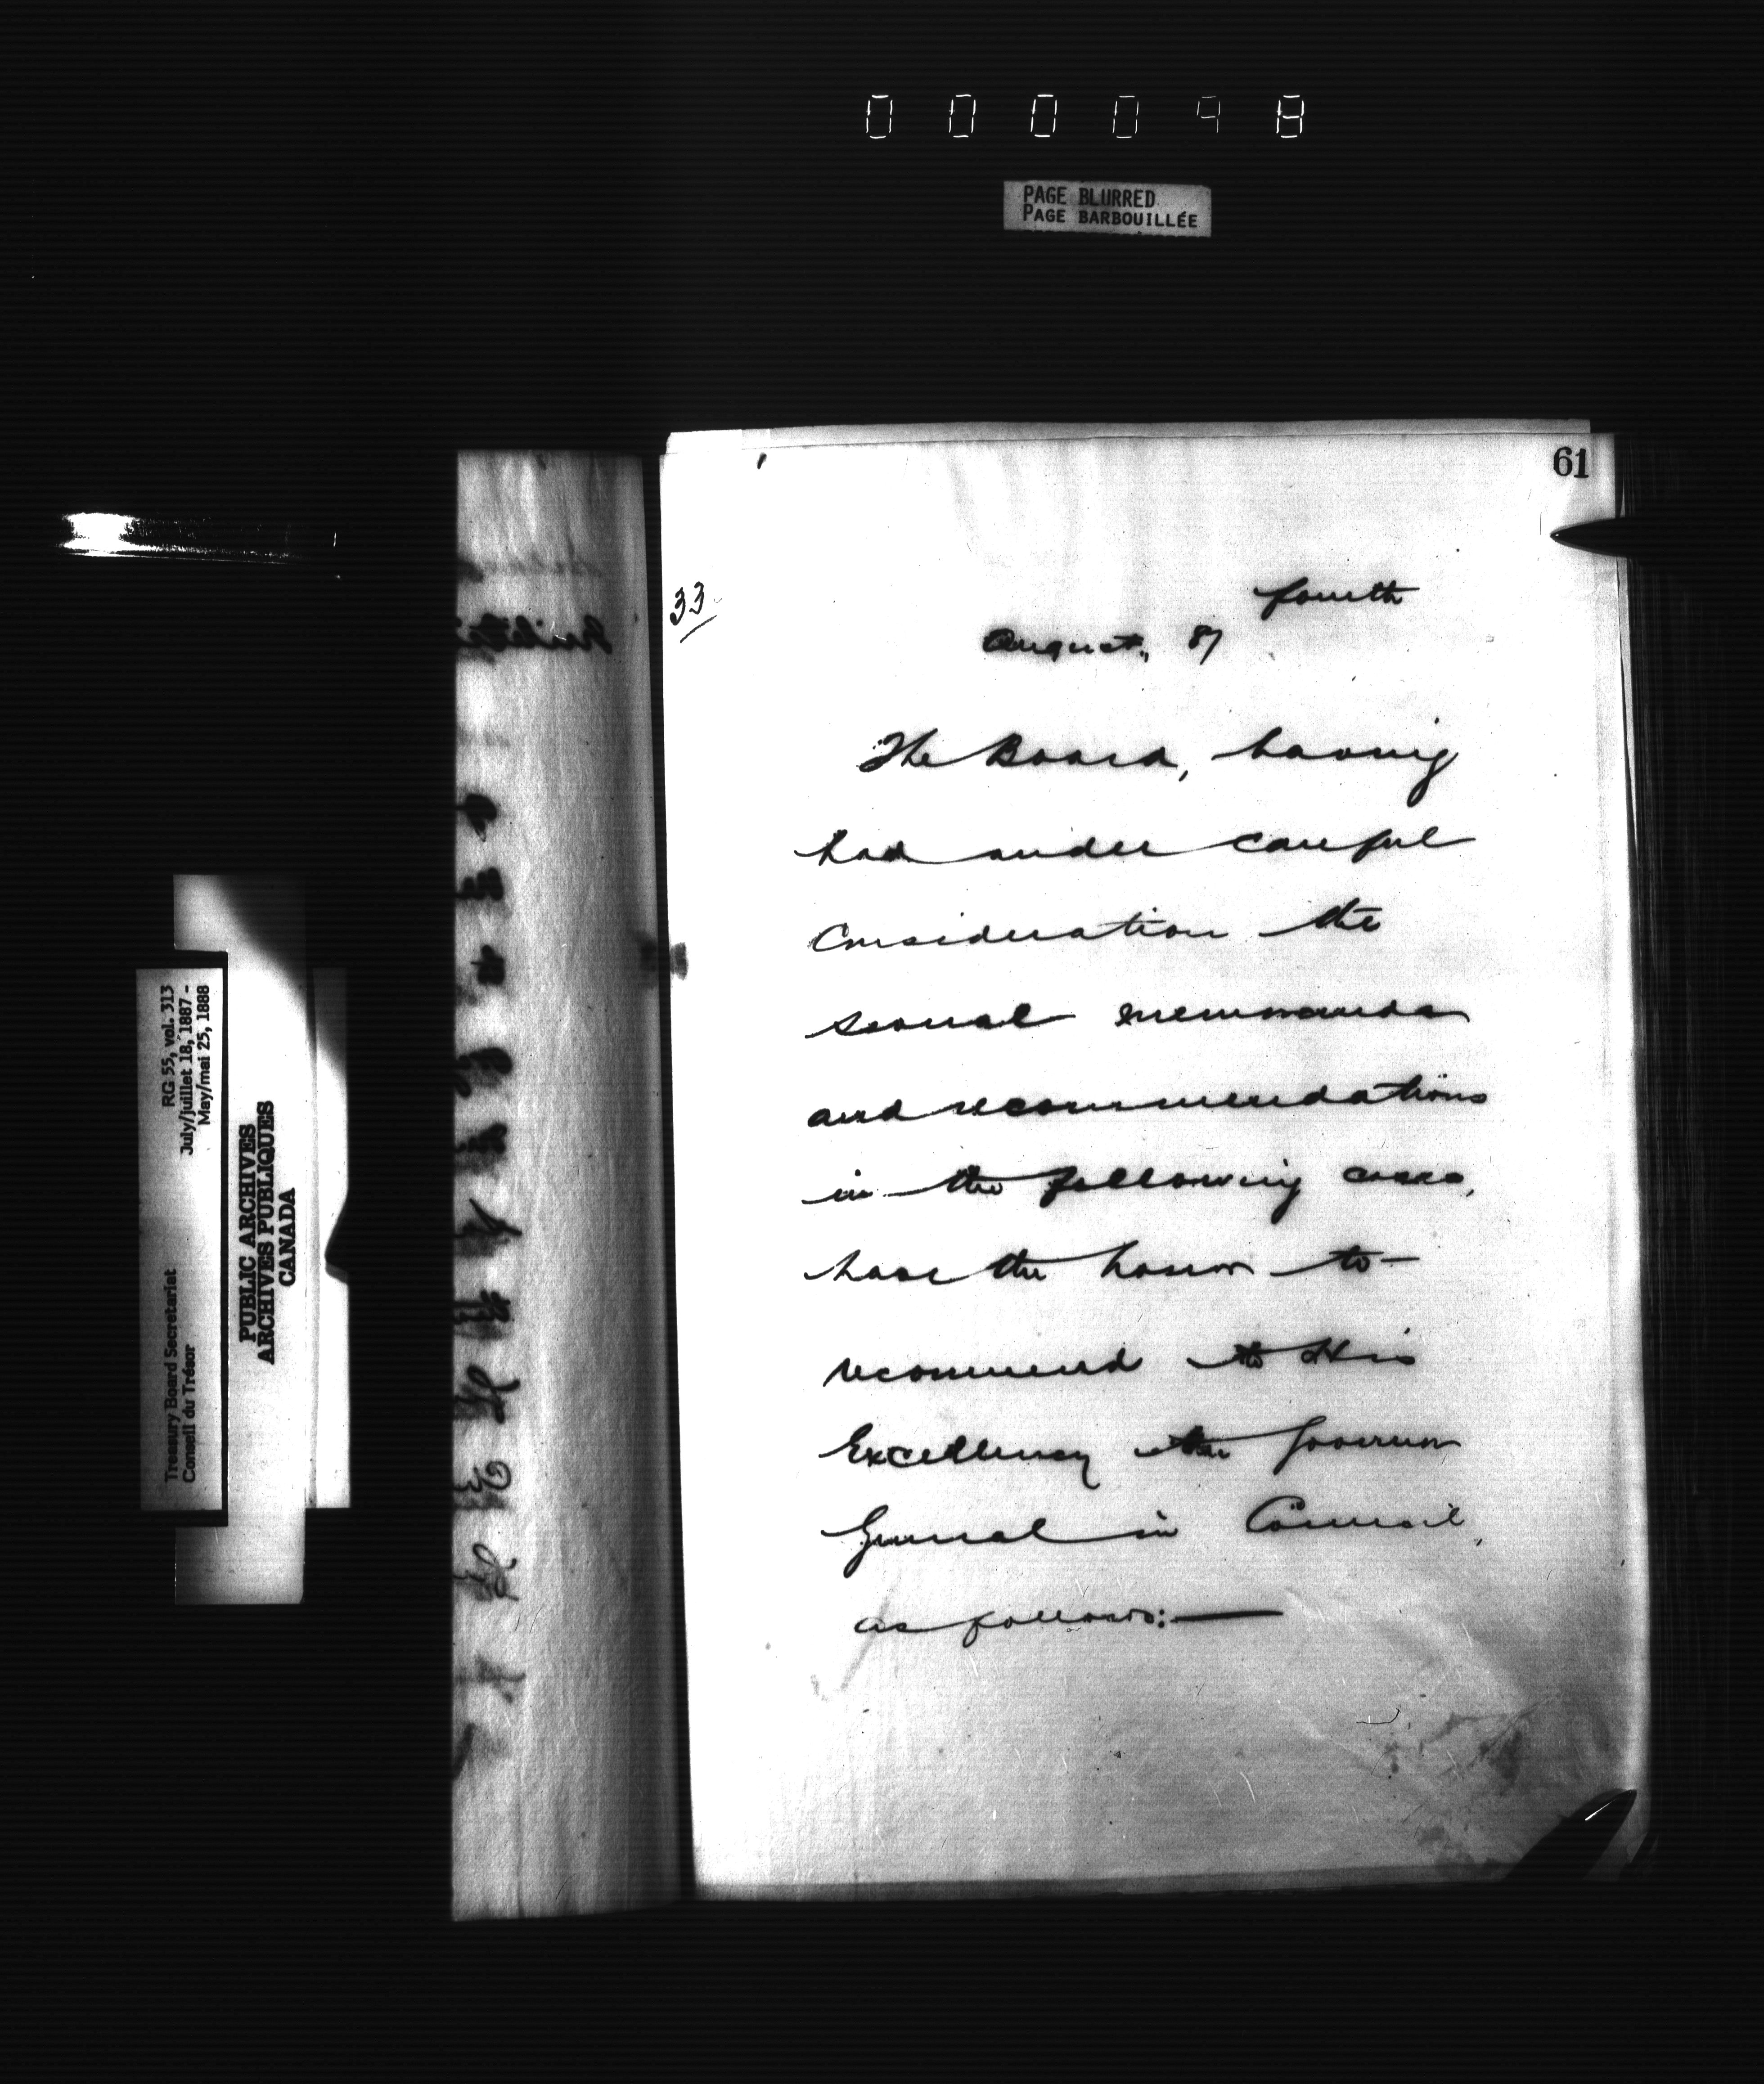 000098
PAGE BLURRED
PAGE BARBOUILLÉE
61
33
fourth
August, 87
The Board, having
had under careful
consideration the
several memoranda
and recommendations
in the following cases,
have the honor to
recommend to His
Excellency the Governor
General in Council,
as follows:—
RG 55, vol. 313
July/juillet 18, 1887 -
May/mai 25, 1888
Treasury Board Secretariat
Conseil du Trésor
PUBLIC ARCHIVES
ARCHIVES PUBLIQUES
CANADA